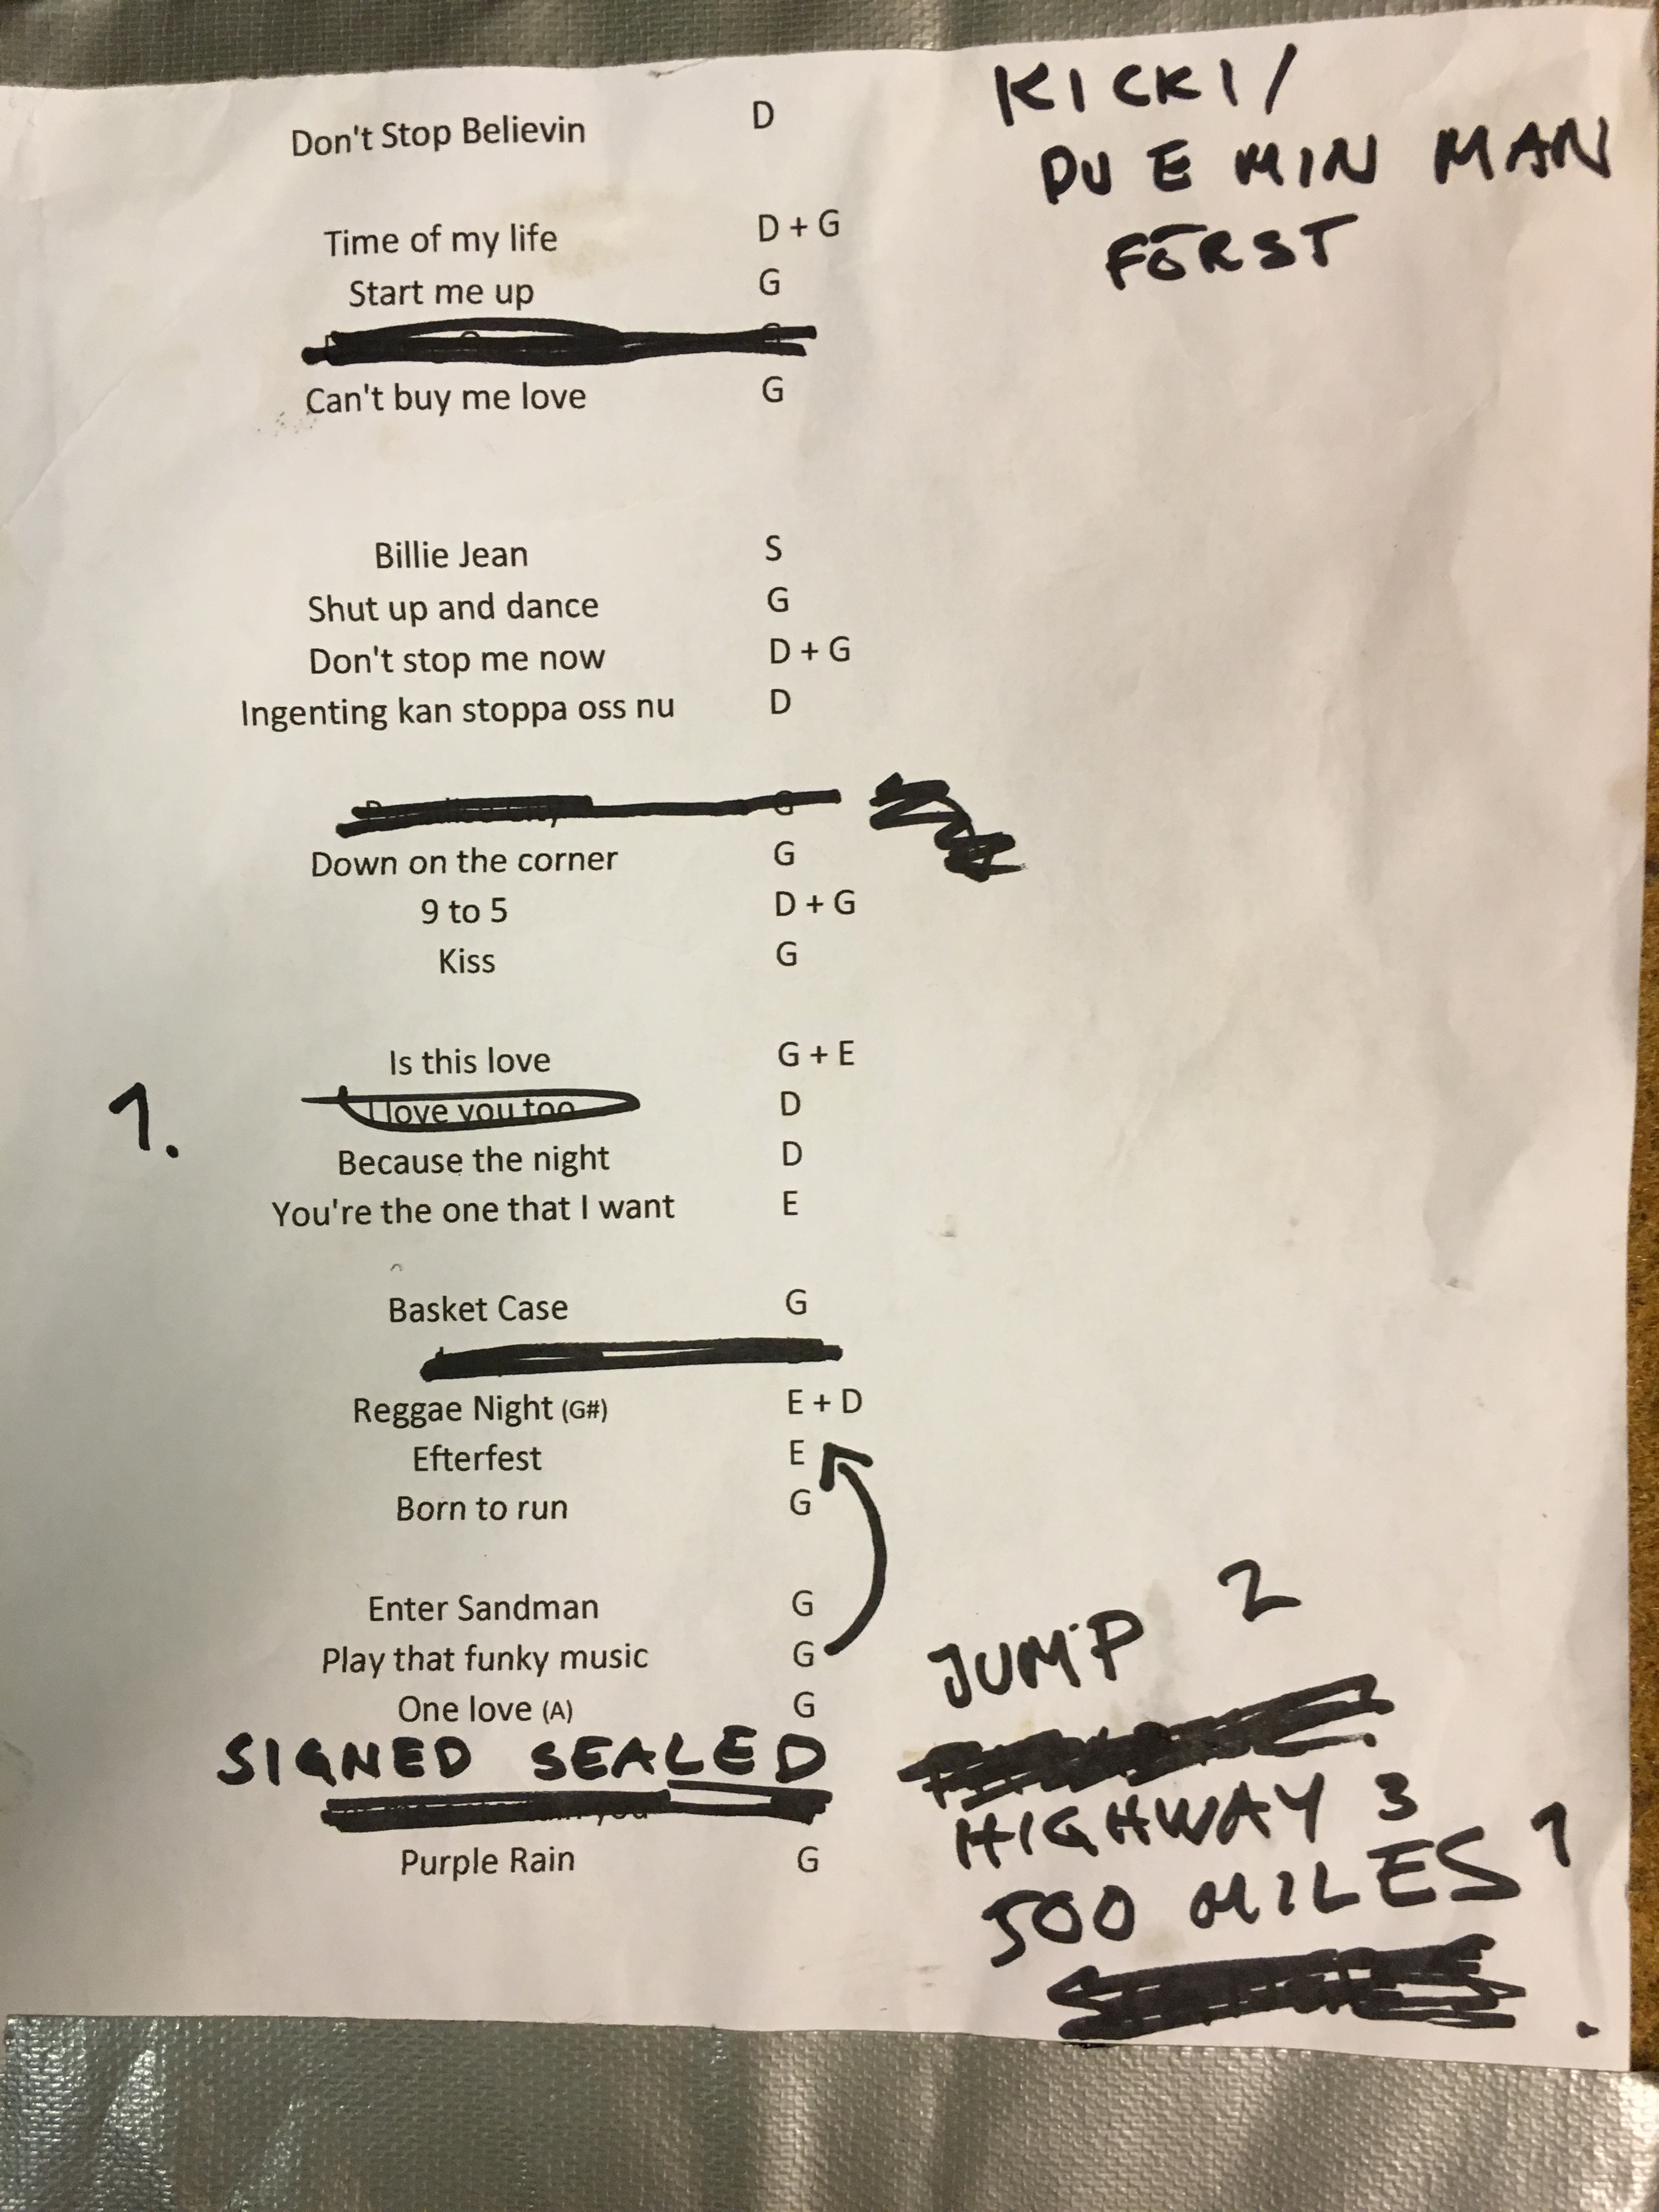 KICKI/
DU E MIN MAN
FÖRST
Don't Stop Believin D
Time of my life D + G
Start me up G
Can't buy me love G
Billie Jean S
Shut up and dance G
Don't stop me now D + G
Ingenting kan stoppa oss nu D
G
Down on the corner G
9 to 5 D + G
Kiss G
Is this love G + E
1. I love you too D
Because the night D
You're the one that I want E
Basket Case G
Reggae Night (G#) E + D
Efterfest E
Born to run G
Enter Sandman G
Play that funky music G
One love (A) G
SIGNED SEALED
you
Purple Rain G
JUMP 2
HIGHWAY 3
500 MILES 1